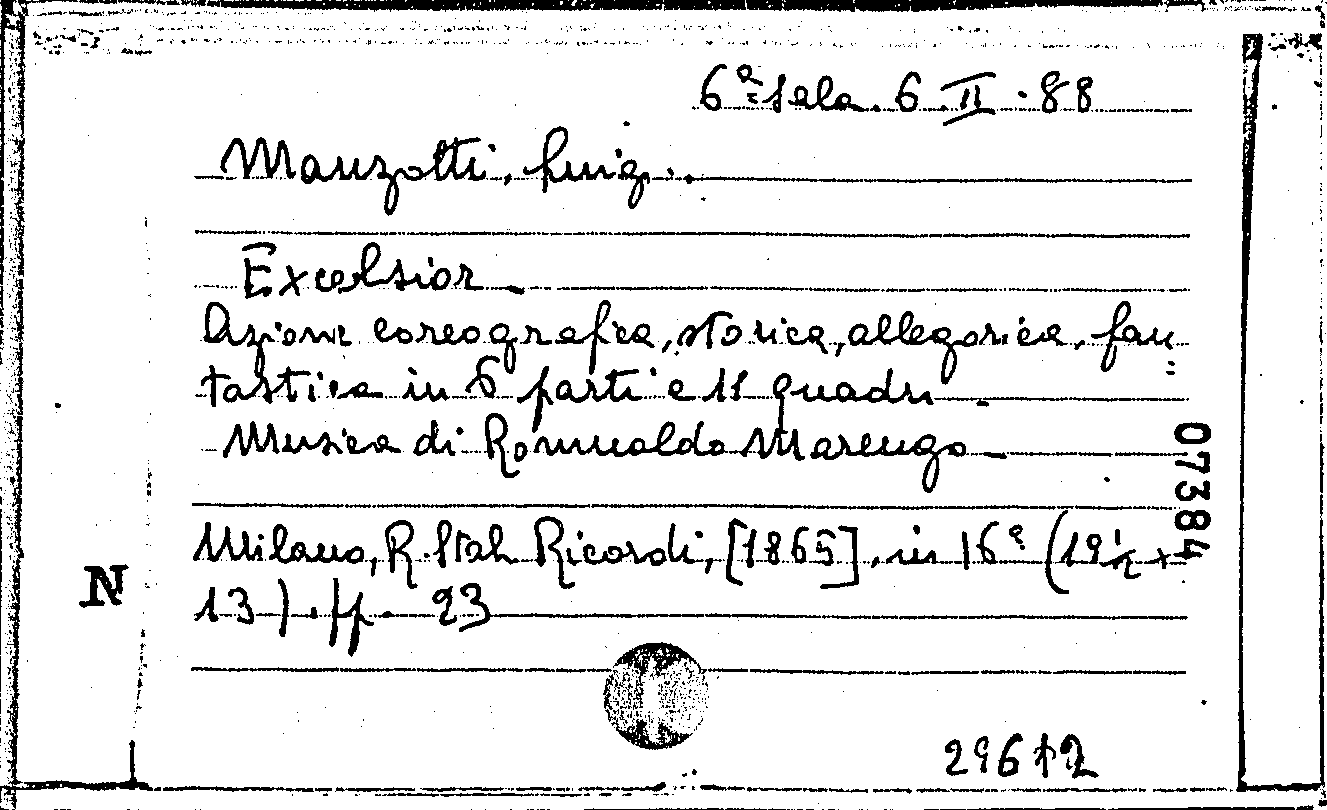 6ª Sala. 6. II. 88
Manzotti, Luigi.
Excelsior.
Azione coreografica, storica, allegorica, fan=
tastica in 6 parti e 11 quadri.
Musica di Romualdo Marengo.
07384
Milano, R. Stab. Ricordi, [1865], in 16º (19½ x
13). pp. 23
N
29612